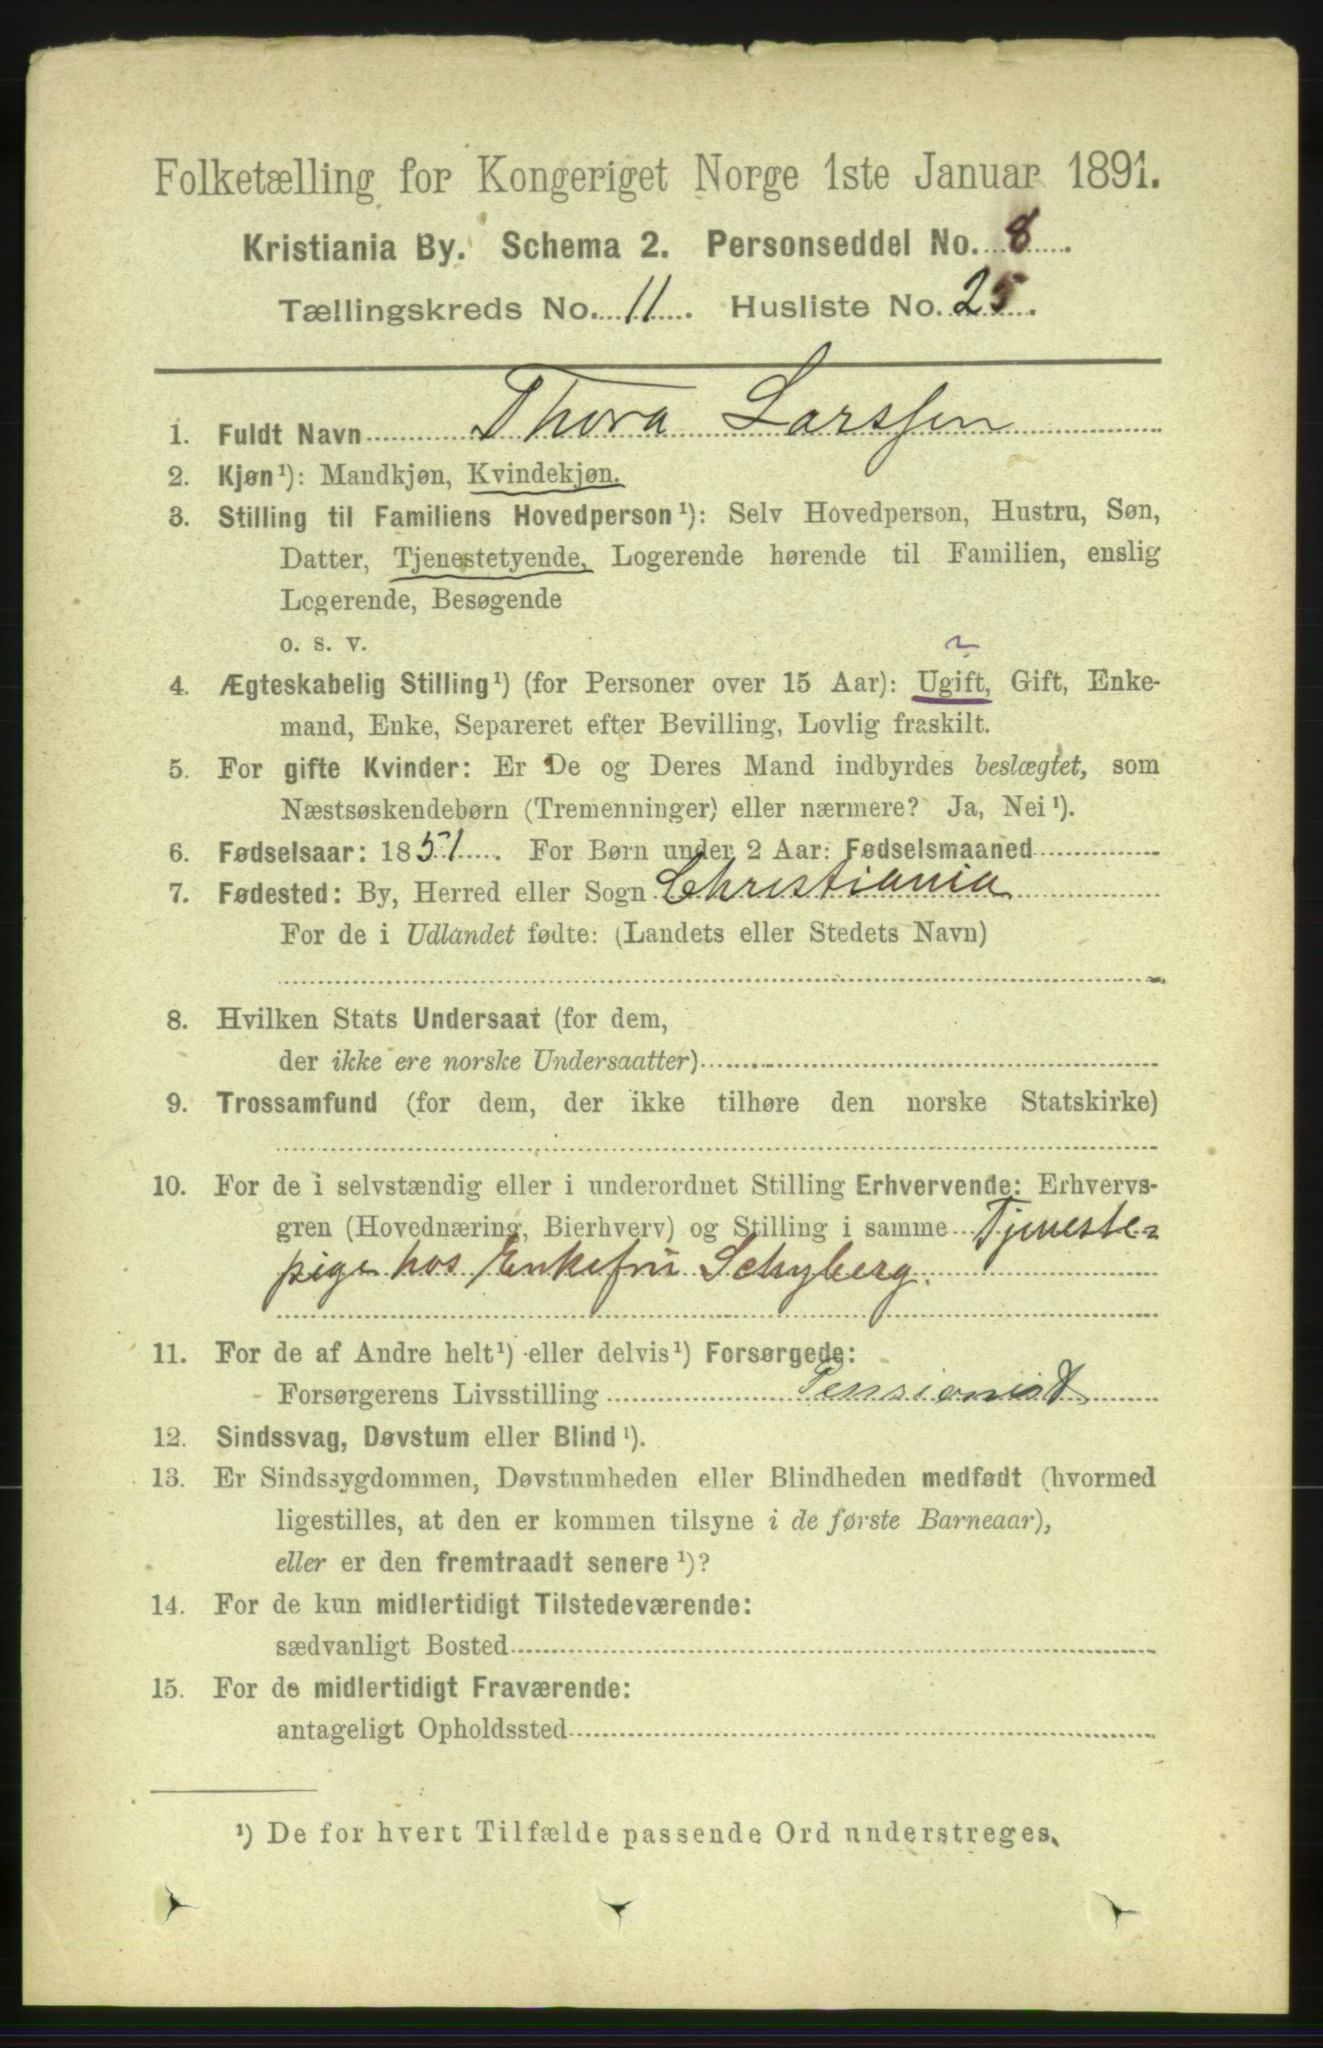 Folketælling for Kongeriget Norge 1ste Januar 1891.
Kristiania By. Schema 2. Personseddel No. 8.
Tællingskreds No. 11. Husliste No. 25.
1. Fuldt Navn Thora Larssen
2. Kjøn¹): Mandkjøn, Kvindekjøn.
3. Stilling til Familiens Hovedperson¹): Selv Hovedperson, Hustru, Søn,
Datter, Tjenestetyende, Logerende hørende til Familien, enslig
Logerende, Besøgende
o. s. v.
4. Ægteskabelig Stilling¹) (for Personer over 15 Aar): Ugift, Gift, Enke-
mand, Enke, Separeret efter Bevilling, Lovlig fraskilt.
5. For gifte Kvinder: Er De og Deres Mand indbyrdes beslægtet, som
Næstsøskendebørn (Tremenninger) eller nærmere? Ja, Nei¹).
6. Fødselsaar: 1851. For Børn under 2 Aar: Fødselsmaaned
7. Fødested: By, Herred eller Sogn Christiania
For de i Udlandet fødte: (Landets eller Stedets Navn)
8. Hvilken Stats Undersaat (for dem,
der ikke ere norske Undersaatter)
9. Trossamfund (for dem, der ikke tilhøre den norske Statskirke)
10. For de i selvstændig eller i underordnet Stilling Erhvervende: Erhvervs-
gren (Hovednæring, Bierhverv) og Stilling i samme Tjeneste-
pige hos Enkefru Schyberg.
11. For de af Andre helt¹) eller delvis¹) Forsørgede:
Forsørgerens Livsstilling Pensionist
12. Sindssvag, Døvstum eller Blind¹).
13. Er Sindssygdommen, Døvstumheden eller Blindheden medfødt (hvormed
ligestilles, at den er kommen tilsyne i de første Barneaar),
eller er den fremtraadt senere¹)?
14. For de kun midlertidigt Tilstedeværende:
sædvanligt Bosted
15. For de midlertidigt Fraværende:
antageligt Opholdssted
¹) De for hvert Tilfælde passende Ord understreges.